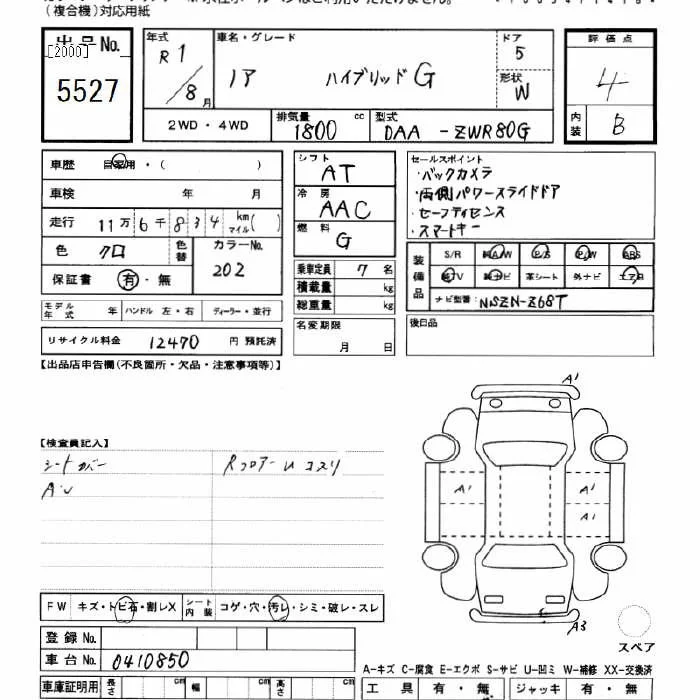 (複合機)対応用紙
出品No.
[2000]
5527
年式
R1/8月
車名・グレード
ノア ハイブリッドG
ドア
5
形状
W
評価点
4
内装
B
2WD・4WD
排気量
1800 cc
型式
DAA-ZWR80G
車歴 自家用・( )
車検 年 月
走行 11万6千834 km マイル( )
色 クロ
色替
カラーNo.
202
保証書 有・無
シフト
AT
冷房
AAC
燃料
G
セールスポイント
・バックカメラ
・両側パワースライドドア
・セーフティセンス
・スマートキー
装備品
S/R 純A/W P/S P/W ABS
純TV 純ナビ 革シート 外ナビ エアB
ナビ型番: NSZN-Z68T
乗車定員 7 名
積載量 kg
総重量 kg
モデル年式 年 ハンドル 左・右 ディーラー・並行
リサイクル料金 12470 円 預託済
名変期限
月 日
後日品
【出品店申告欄(不良箇所・欠品・注意事項等)】
【検査員記入】
シートカバー
Rフロアー U コスリ
A・U
A1
A1
A1
A1
A3
スペア
FW キズ・トビ石・割レX
シート内装 コゲ・穴・汚レ・シミ・破レ・スレ
登録No.
車台No. 0410850
A-キズ C-腐食 E-エクボ S-サビ U-凹ミ W-補修 XX-交換済
車庫証明用 長さ cm 幅 cm 高さ cm
工具 有・無 ジャッキ 有・無